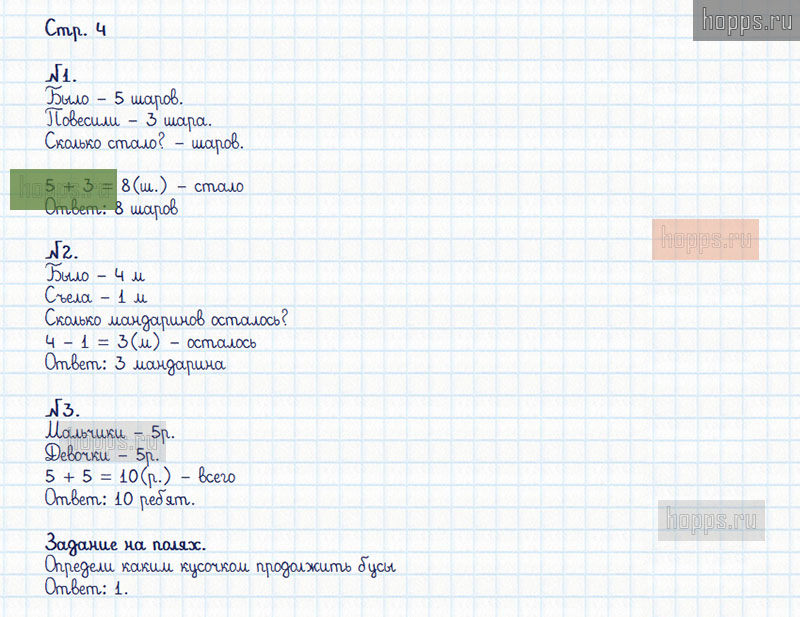 hopps.ru
Стр. 4
№1.
Было – 5 шаров.
Повесили – 3 шара.
Сколько стало? – шаров.
5 + 3 = 8(ш.) – стало
hopps.ru
Ответ: 8 шаров
hopps.ru
№2.
Было – 4 м
Съела – 1 м
Сколько мандаринов осталось?
4 – 1 = 3(м) – осталось
Ответ: 3 мандарина
№3.
Мальчики – 5р.
hopps.ru
Девочки – 5р.
5 + 5 = 10(р.) – всего
Ответ: 10 ребят.
hopps.ru
Задание на полях.
Определи каким кусочком продолжить бусы
Ответ: 1.